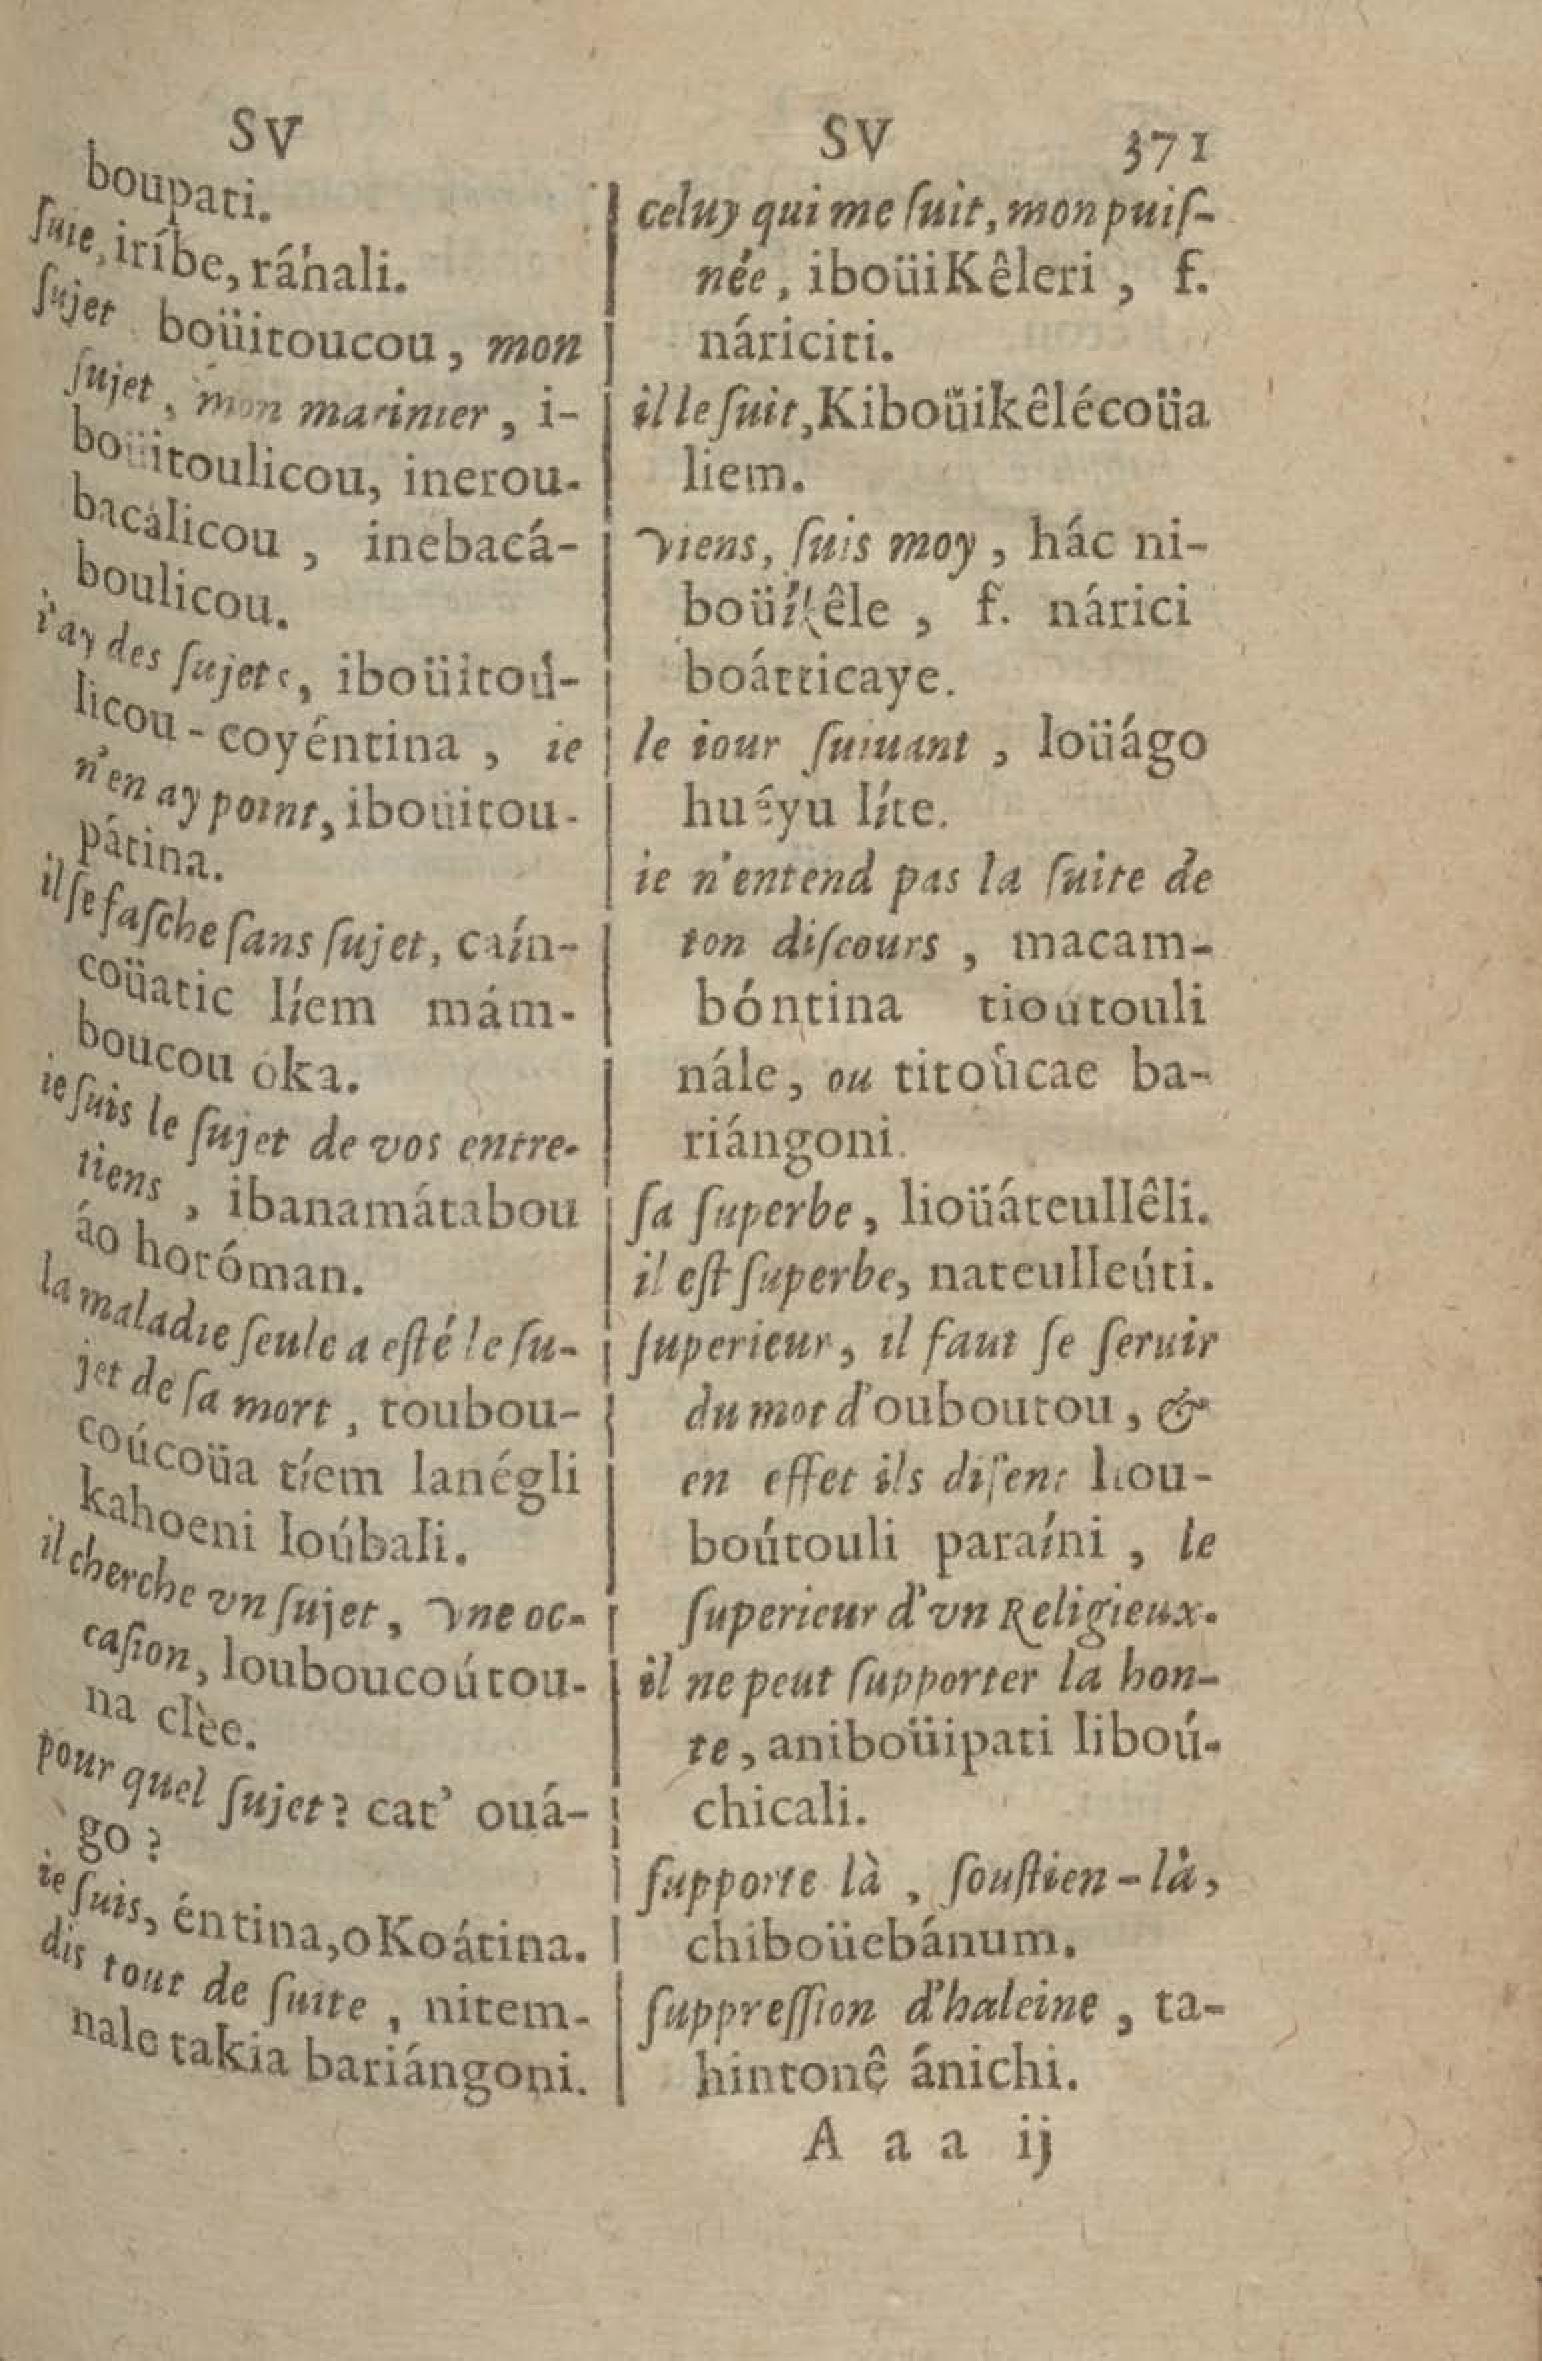 SV
boupati.
ſuie, iríbe, ráhali.
ſujet boüitoucou, mon
ſujet, mon marinier, i-
boüitoulicou, inerou-
bacálicou, inebacá-
boulicou.
i'ay des ſujets, iboüitoú-
licou-coyéntina, ie
n'en ay point, iboüitou-
pátina.
il ſe faſche ſans ſujet, caín-
coüatic líem mám-
boucou oka.
ie ſuis le ſujet de vos entre-
tiens, ibanamátabou
áo horóman.
la maladie ſeule a eſté le ſu-
jet de ſa mort, toubou-
coúcoüa tíem lanégli
kahoeni loúbali.
il cherche vn ſujet, vne oc-
caſion, louboucoútou-
na clèe.
pour quel ſujet? cat' ouá-
go?
ie ſuis, éntina, oKoátina.
dis tout de ſuite, nitem-
nale takia bariángoni.
SV 371
celuy qui me ſuit, mon puiſ-
née, iboüiKêleri, f.
náriciti.
il le ſuit, Kiboüikêlécoüa
liem.
viens, ſuis moy, hác ni-
boüíkêle, f. nárici
boátticaye.
le iour ſuiuant, loüágo
huéyu líte.
ie n'entend pas la ſuite de
ton diſcours, macam-
bóntina tioútouli
nále, ou titoúcae ba-
riángoni.
ſa ſuperbe, lioüáteullêli.
il eſt ſuperbe, nateulleúti.
ſuperieur, il faut ſe ſeruir
du mot d'ouboutou, &
en effet ils diſent liou-
boútouli paraíni, le
ſuperieur d'vn Religieux.
il ne peut ſupporter la hon-
te, aniboüipati liboú-
chicali.
ſupporte là, ſouſtien-là,
chiboüebánum.
ſuppreſſion d'haleine, ta-
hintonê ánichi.
A a a ij